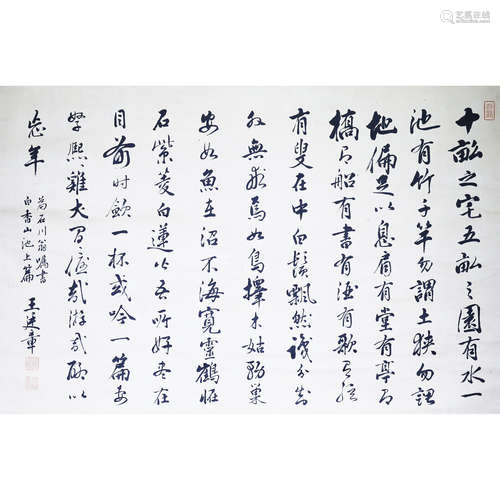 艺狐在线
十畝之宅五畝之園有水一
池有竹千竿勿謂土狹勿謂
地偏足以息肩有堂有亭有
橋有船有書有酒有歌有弦
有叟在中白鬚飄然識分知
外無求焉如鳥擇木姑務巢
安如魚在沼不海寬靈鶴怪
石紫菱白蓮皆吾所好盡在
目前時飲一杯或吟一篇妻
孥熙〻雞犬閒〻優哉游哉以
忘年
石川翁囑書
白香山池上篇
王建章